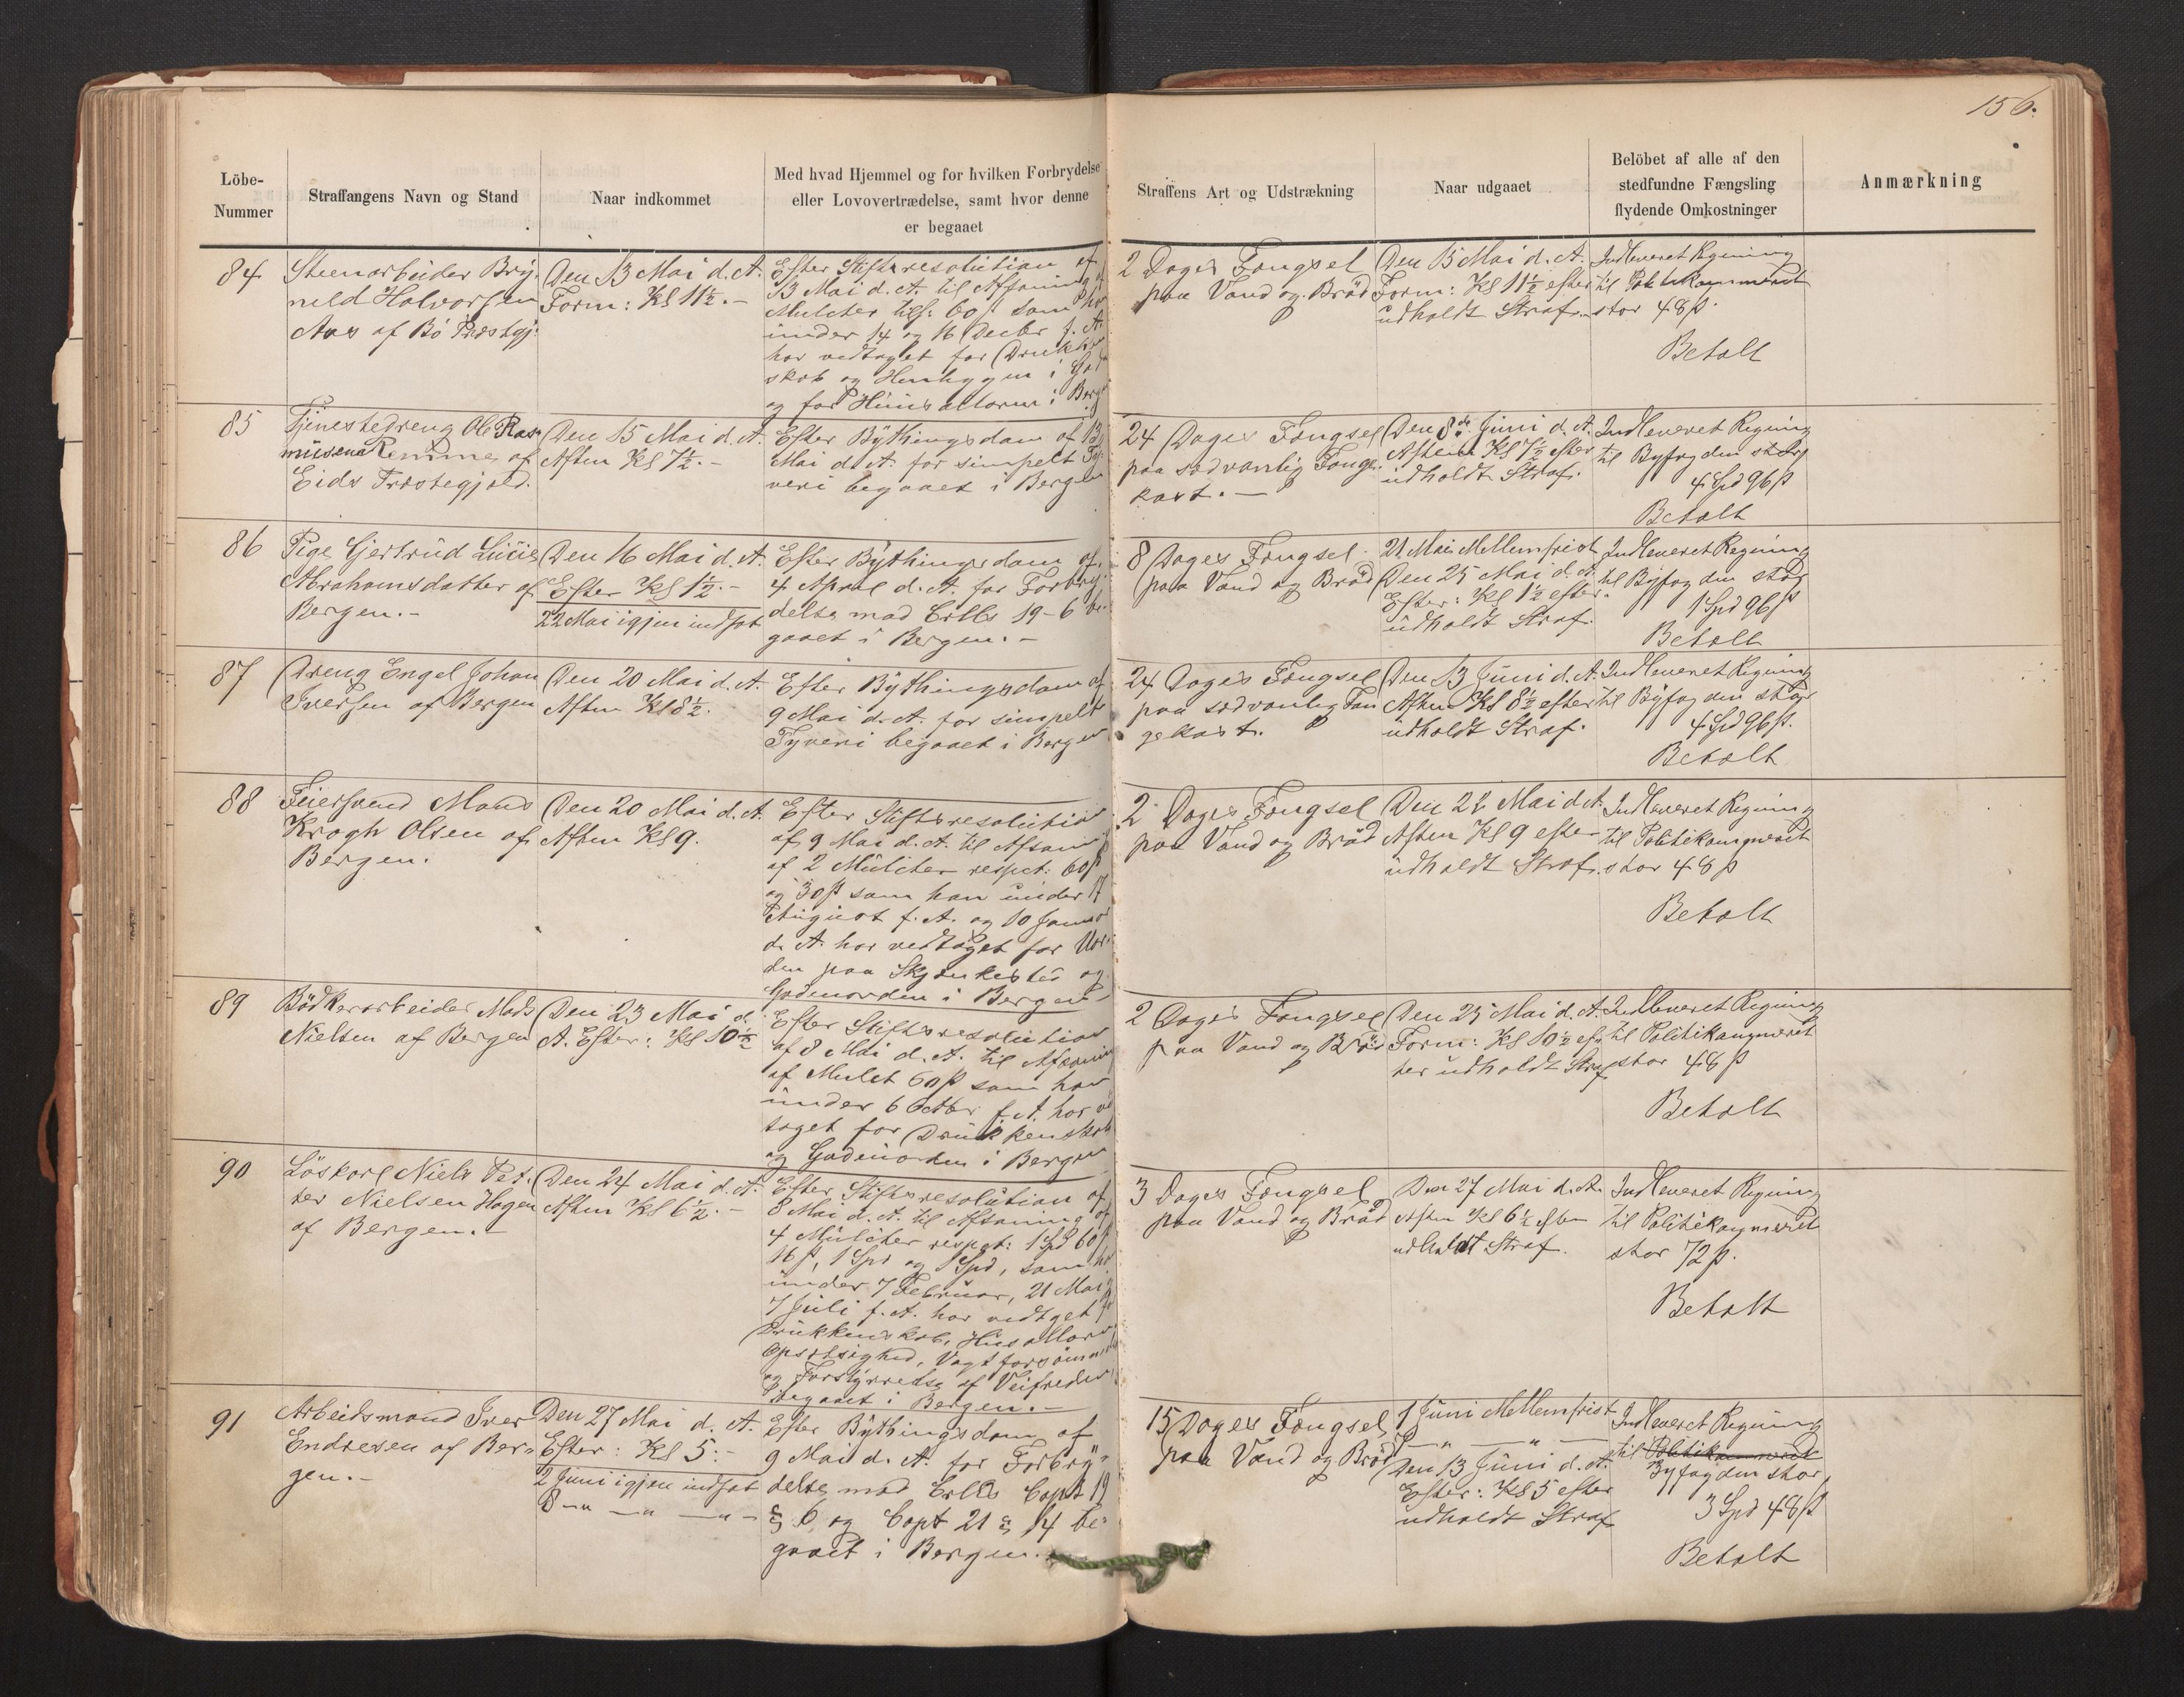 156.
Löbe-
Nummer
Straffangens Navn og Stand
Naar indkommet
Med hvad Hjemmel og for hvilken Forbrydelse
eller Lovovertrædelse, samt hvor denne
er begaaet
Straffens Art og Udstrækning
Naar udgaaet
Belöbet af alle af den
stedfundne Fængsling
flydende Omkostninger
Anmærkning
84
Steenarbeider Bry-
nild Halvorsen
Aas af Bö Præstgj:
Den 13 Mai d. A.
Form: Kl 11½. -
Efter Stiftsresolution af
13 Mai d. A. til Afsoning af
Mulcter tils: 60 ß som han
under 14 og 16 Decbr f. A.
har vedtaget for Drukken
skab og i Gad
og for Huusallarm i Berg
2 Dages Fængsel
paa Vand og Bröd
Den 15 Mai d. A.
Form: Kl 11½ efter
udholdt Straf.
Indleveret Regning
til Politikammeret
stor 48 ß.
Betalt
85
Tjenestedreng Ole Ras-
musen Remme af
Eids Præstegjæld.
Den 15 Mai d. A.
Aften Kl 7½. -
Efter Bythingsdom af 13
Mai d. A. for simpelt Ty-
veri begaaet i Bergen
24 Dages Fængsel
paa sædvanlig Fange
kost. -
Den 8de Juni d. A.
Aften Kl 7½ efter
udholdt Straf.
Indleveret Regning
til Byfogden stor
4 Spd 96 ß
Betalt
86
Pige Gjertrud Lucie
Abrahamsdatter af
Bergen. -
Den 16 Mai d. A.
Efter Kl 1½. -
22 Mai igjen indsat
Efter Bythingsdom af
4 April d. A. for Forbry-
delse mod Crlls 19-6 be-
gaaet i Bergen. -
8 Dages Fængsel
paa Vand og Bröd
21 Mai Mellemfrist
Den 25 Mai d. A.
Efter: Kl 1½ efter
udholdt Straf.
Indleveret Regning
til Byfogden stor
1 Spd 96 ß
Betalt
87
Dreng Engel Johan
Iversen af Bergen
Den 20 Mai d. A.
Aften Kl 8½.
Efter Bythingsdom af
9 Mai d. A. for simpelt
Tyveri begaaet i Bergen
24 Dages Fængsel
paa sædvanlig Fan
gekost.
Den 13 Juni d. A.
Aften Kl 8½ efter
udholdt Straf.
Indleveret Regning
til Byfogden stor
4 Spd 96 ß.
Betalt
88
Feiersvend Mons
Krogh Olsen af
Bergen.
Den 20 Mai d. A.
Aften Kl 9.
Efter Stiftsresolution
af 9 Mai d. A. til Afsoning
af 2 Mulcter respct: 60 ß
og 30 ß som han under 17
August f. A. og 10 Januar
d. A. har vedtaget for Uor-
den paa Skjænkested og
Gadeuorden i Bergen -
2 Dages Fængsel
paa Vand og Bröd
Den 22 Mai d. A.
Aften Kl 9 efter
udholdt Straf.
Indleveret Regning
til Politikammeret
stor 48 ß
Betalt
89
Bödkerarbeider Mads
Nielsen af Bergen
Den 23 Mai d.
A. Efter: Kl 10½
Efter Stiftsresolution
af 8 Mai d. A. til Afsoning
af Mulct 60 ß som han
under 6 Octbr f. A. har ved
taget for Drukkenskab
og Gadeuorden i Bergen
2 Dages Fængsel
paa Vand og Bröd
Den 25 Mai d. A.
Form: Kl 10½ ef-
ter udholdt Straf
Indleveret Regning
til Politikammeret
stor 48 ß
Betalt
90
Löskarl Niels Pet-
ter Nielsen Hagen
af Bergen. -
Den 24 Mai d. A.
Aften Kl 6½. -
Efter Stiftsresolution af
8 Mai d. A. til Afsoning af
4 Mulcter respct: 1 Spd 60 ß
16 ß, 1 Spd og 1 Spd, som han
under 7 Februar, 21 Mai
7 Juli f. A. har vedtget for
Drukkenskab, Husallarm
Opsætsighed, Vagtforsömmelse
og Forstyrrelse af Veifreden
begaaet i Bergen. -
3 Dages Fængsel
paa Vand og Bröd
Den 27 Mai d. A.
Aften Kl 6½ efter
udholdt Straf.
Indleveret Regning
til Politikammeret
stor 72 ß.
Betalt
91
Arbeidsmand Iver
Endresen af Ber-
gen. -
Den 27 Mai d. A.
Efter: Kl 5. -
2 Juni igjen indsat
8 — " — " — " —
Efter Bythingsdom af
9 Mai d. A. for Forbry-
delse mod Crlls Capt 19
§ 6 og Capt 21 § 14 be-
gaaet i Bergen. -
15 Dages Fængsel
paa Vand og Bröd
1 Juni Mellemfrist
7 — " — " —
Den 13 Juni d. A.
Efter: Kl 5 efter
udholdt Straf
Indleveret Regning
til Politikammeret
Byfogden stor
3 Spd 48 ß
Betalt